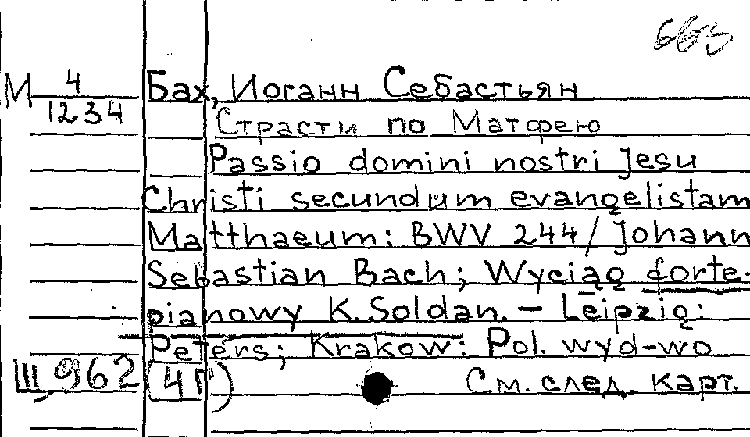 663
М 4/1234 Бах, Иоганн Себастьян
Страсти по Матфею
Passio domini nostri Jesu
Christi secundum evangelistam
Matthaeum: BWV 244/Johann
Sebastian Bach; Wyciąg forte-
pianowy K. Soldan. – Leipzig:
Peters; Krakow: Pol. wyd-wo
Щ962 (4Г) См. след. карт.